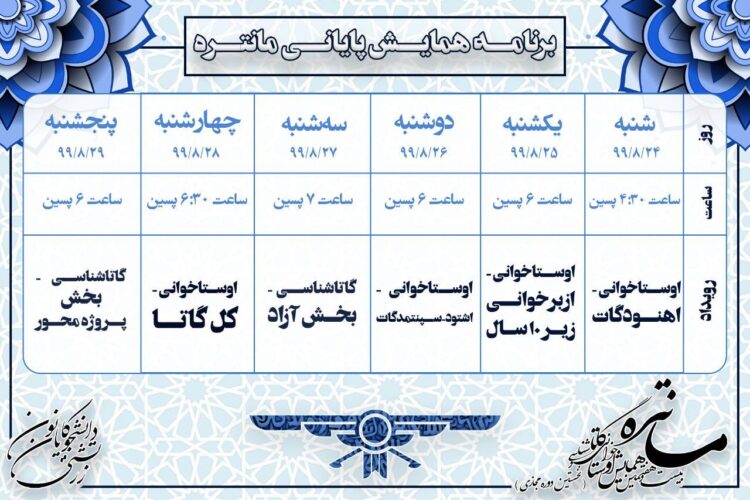 برنامه همایش پایانی مانتره
روز
شنبه
۹۹/۸/۲۴
یکشنبه
۹۹/۸/۲۵
دوشنبه
۹۹/۸/۲۶
سه‌شنبه
۹۹/۸/۲۷
چهارشنبه
۹۹/۸/۲۸
پنجشنبه
۹۹/۸/۲۹
ساعت
ساعت ۴:۳۰ پسین
ساعت ۶ پسین
ساعت ۶ پسین
ساعت ۷ پسین
ساعت ۶:۳۰ پسین
ساعت ۶ پسین
رویداد
اوستاخوانی-
اهنودگات
اوستاخوانی-
ازبرخوانی
زیر ۱۰ سال
اوستاخوانی -
اشتود-سپنتمدگات
گاتاشناسی -
بخش آزاد
اوستاخوانی-
کل گاتا
گاتاشناسی -
بخش
پروژه محور
مانتره
بیست و هفتمین همایش اوستاخوانی و گاتاشناسی
(نخستین دوره مجازی)
کانون دانشجویان زرتشتی